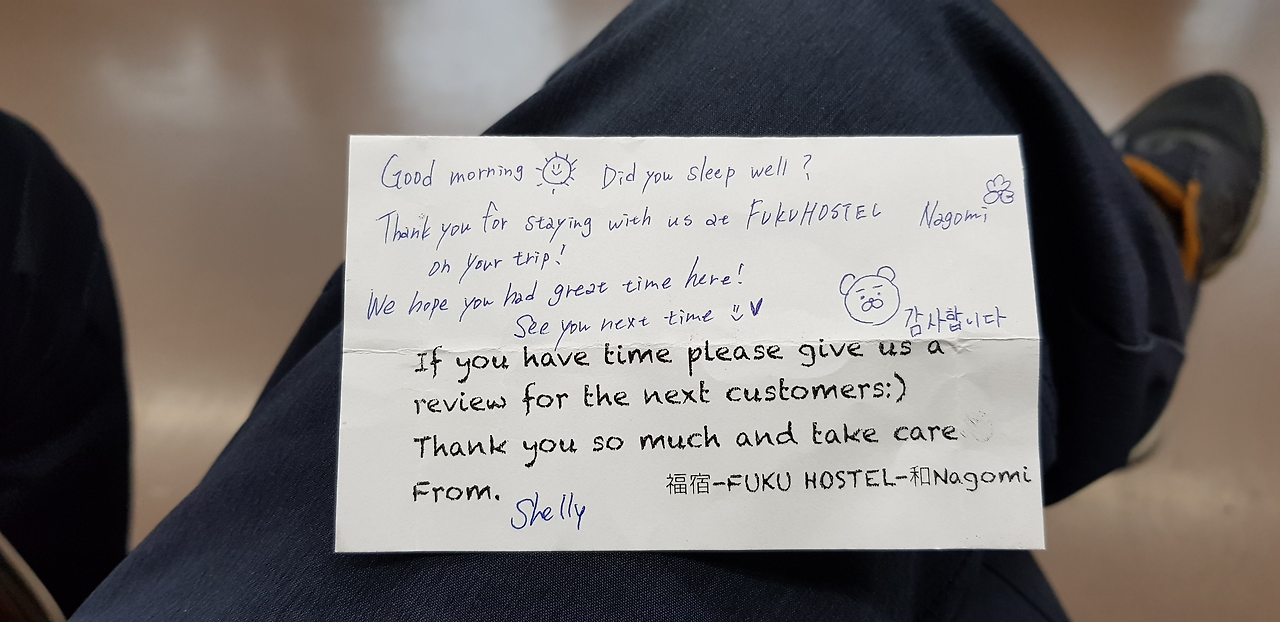 Good morning Did you sleep well?
Thank you for staying with us at FUKUHOSTEL Nagomi
on your trip!
We hope you had great time here!
See you next time
감사합니다
If you have time please give us a
review for the next customers:)
Thank you so much and take care
From. 福宿-FUKU HOSTEL-和Nagomi
Shelly